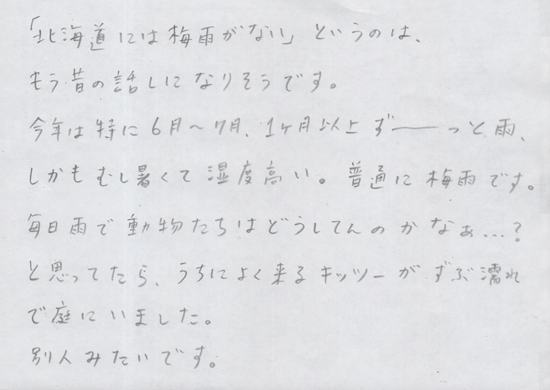 「北海道には梅雨がない」というのは、
もう昔の話しになりそうです。
今年は特に6月～7月、1ヶ月以上ず──っと雨、
しかもむし暑くて湿度高い。普通に梅雨です。
毎日雨で動物たちはどうしてんのかなぁ…?
と思ってたら、うちによく来るキッツーがずぶ濡れ
で庭にいました。
別人みたいです。